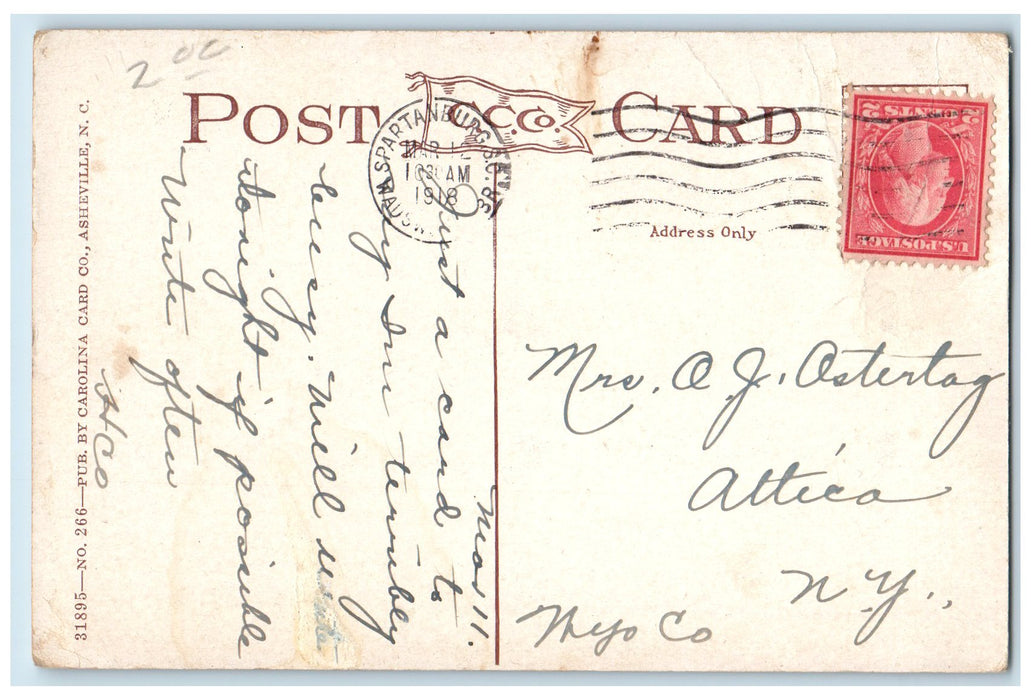 2 00
POST CARD
C.C.Co.
SPARTANBURG, S.C.
MAR 12
10 30 AM
1918
WADSW. BR.
2 CENTS 2
U.S. POSTAGE
Address Only
Mar 11.
Just a card to
say I'm terribly
busy. Will write
tonight if possible
Write often
Mrs. A J. Ostertag
Attica
N. Y.,
Wyo Co
31895—NO. 266—PUB. BY CAROLINA CARD CO., ASHEVILLE, N. C.